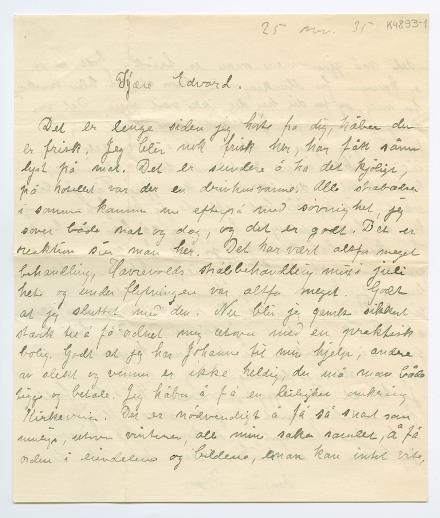 25 nov. 35 K4893-1
Kjære Edvard.
Det er lenge siden jeg hørte fra dig, håber du
er frisk. Jeg blir nok frisk her, har fått sånn
lyst på mat. Det er sundere å ha det kjølig,
på hotellet var der en drivhusvarme. Alle
i samme kamme nu efterpå med søvnighet, jeg
sover både nat og dag, og det er godt. Det er
reaktion sier man her. Det har vært altfor meget
behandling, strålbehandling midt i juli
hete og under flytningen var altfor meget. Godt
at jeg sluttet med den. Nu blir jeg ganske sikkert
stærk til å få ordnet mig utover med en praktisk
bolig. Godt at jeg har Johanne til min hjelp, andre
av slekt og venner er ikke heldig, du må man både
og betale. Jeg håber å få en leilighet omkring
Kirkeveien. Det er nødvendigt å få så snart som
mulig, utover vinteren, alle mine saker samlet, å få
orden i eiendelene og billedene, man kan intet vite,